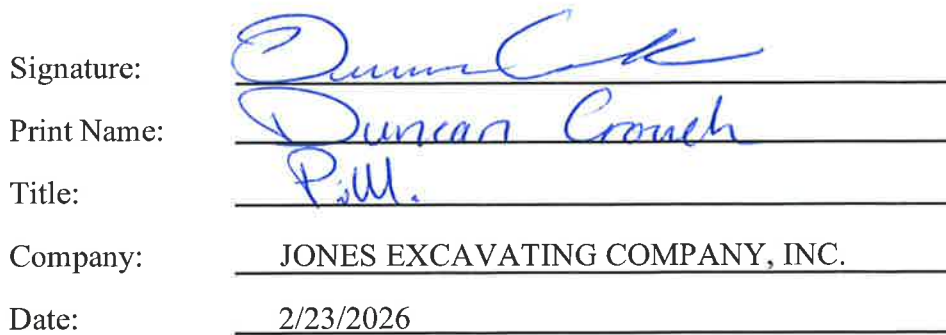 Signature: Duncan Crouch
Print Name: Duncan Crouch
Title: P.M.
Company: JONES EXCAVATING COMPANY, INC.
Date: 2/23/2026